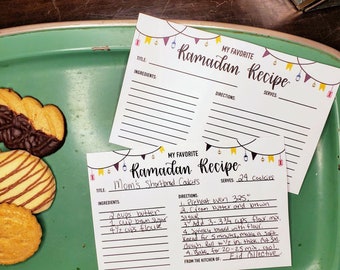 MY FAVORITE
Ramadan Recipe
TITLE: SERVES:
INGREDIENTS: DIRECTIONS:
MY FAVORITE
Ramadan Recipe
TITLE: Mom's Shortbread Cookies SERVES: 24 cookies
INGREDIENTS: DIRECTIONS:
2 cups butter
1 cup brown sugar
4½ cups flour
1. Preheat oven 325°
2. Cream butter and brown
sugar
3. Add 3 - 3¾ cups flour mix
4. board with flour
Knead for 5 minutes,
dough. Roll to ½ in thick.
Bake for 20-25 min
FROM THE KITCHEN OF: Eid Collective